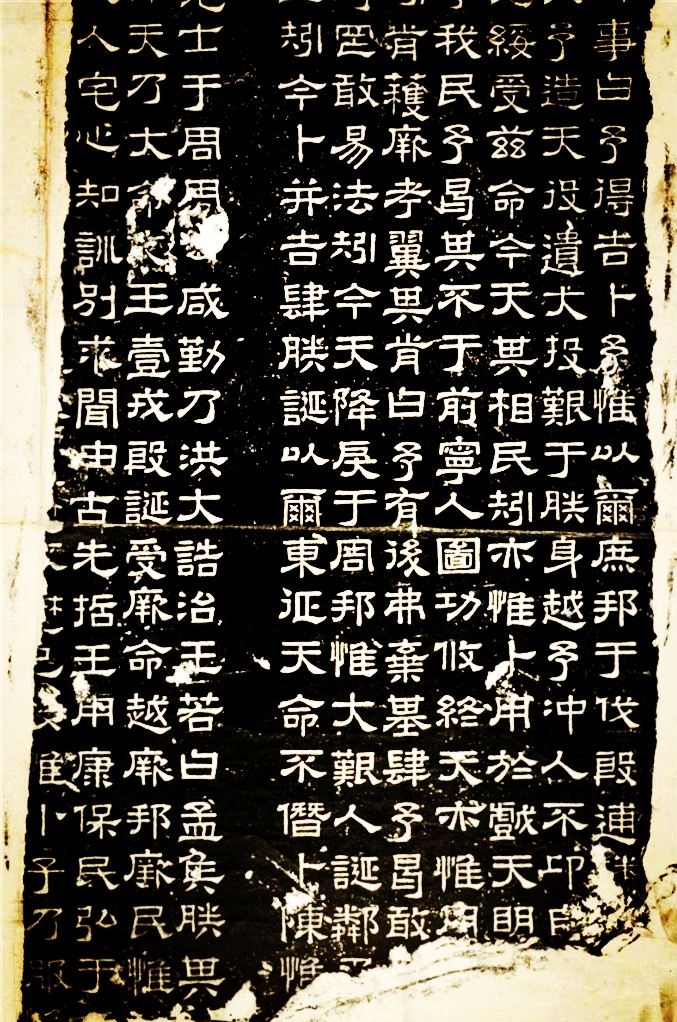 事曰予得吉卜予惟以爾庶邦于伐殷逋
予造天役遺大投艱于朕身越予沖人不卬自
綏受茲命今天其相民矧亦惟卜用於戲天明
我民予曷其不于前寧人圖功攸終天亦惟用
肯穫厥考翼其肯曰予有後弗棄基肆予曷敢
罔敢易法矧今天降戾于周邦惟大艱人誕鄰
矧今卜并吉肆朕誕以爾東征天命不僭卜陳惟
士于周周咸勤乃洪大誥治王若曰孟侯朕其
天乃大命文王壹戎殷誕受厥命越厥邦厥民惟
人宅心知訓別求聞由古先哲王用康保民弘于
已惟小子乃服